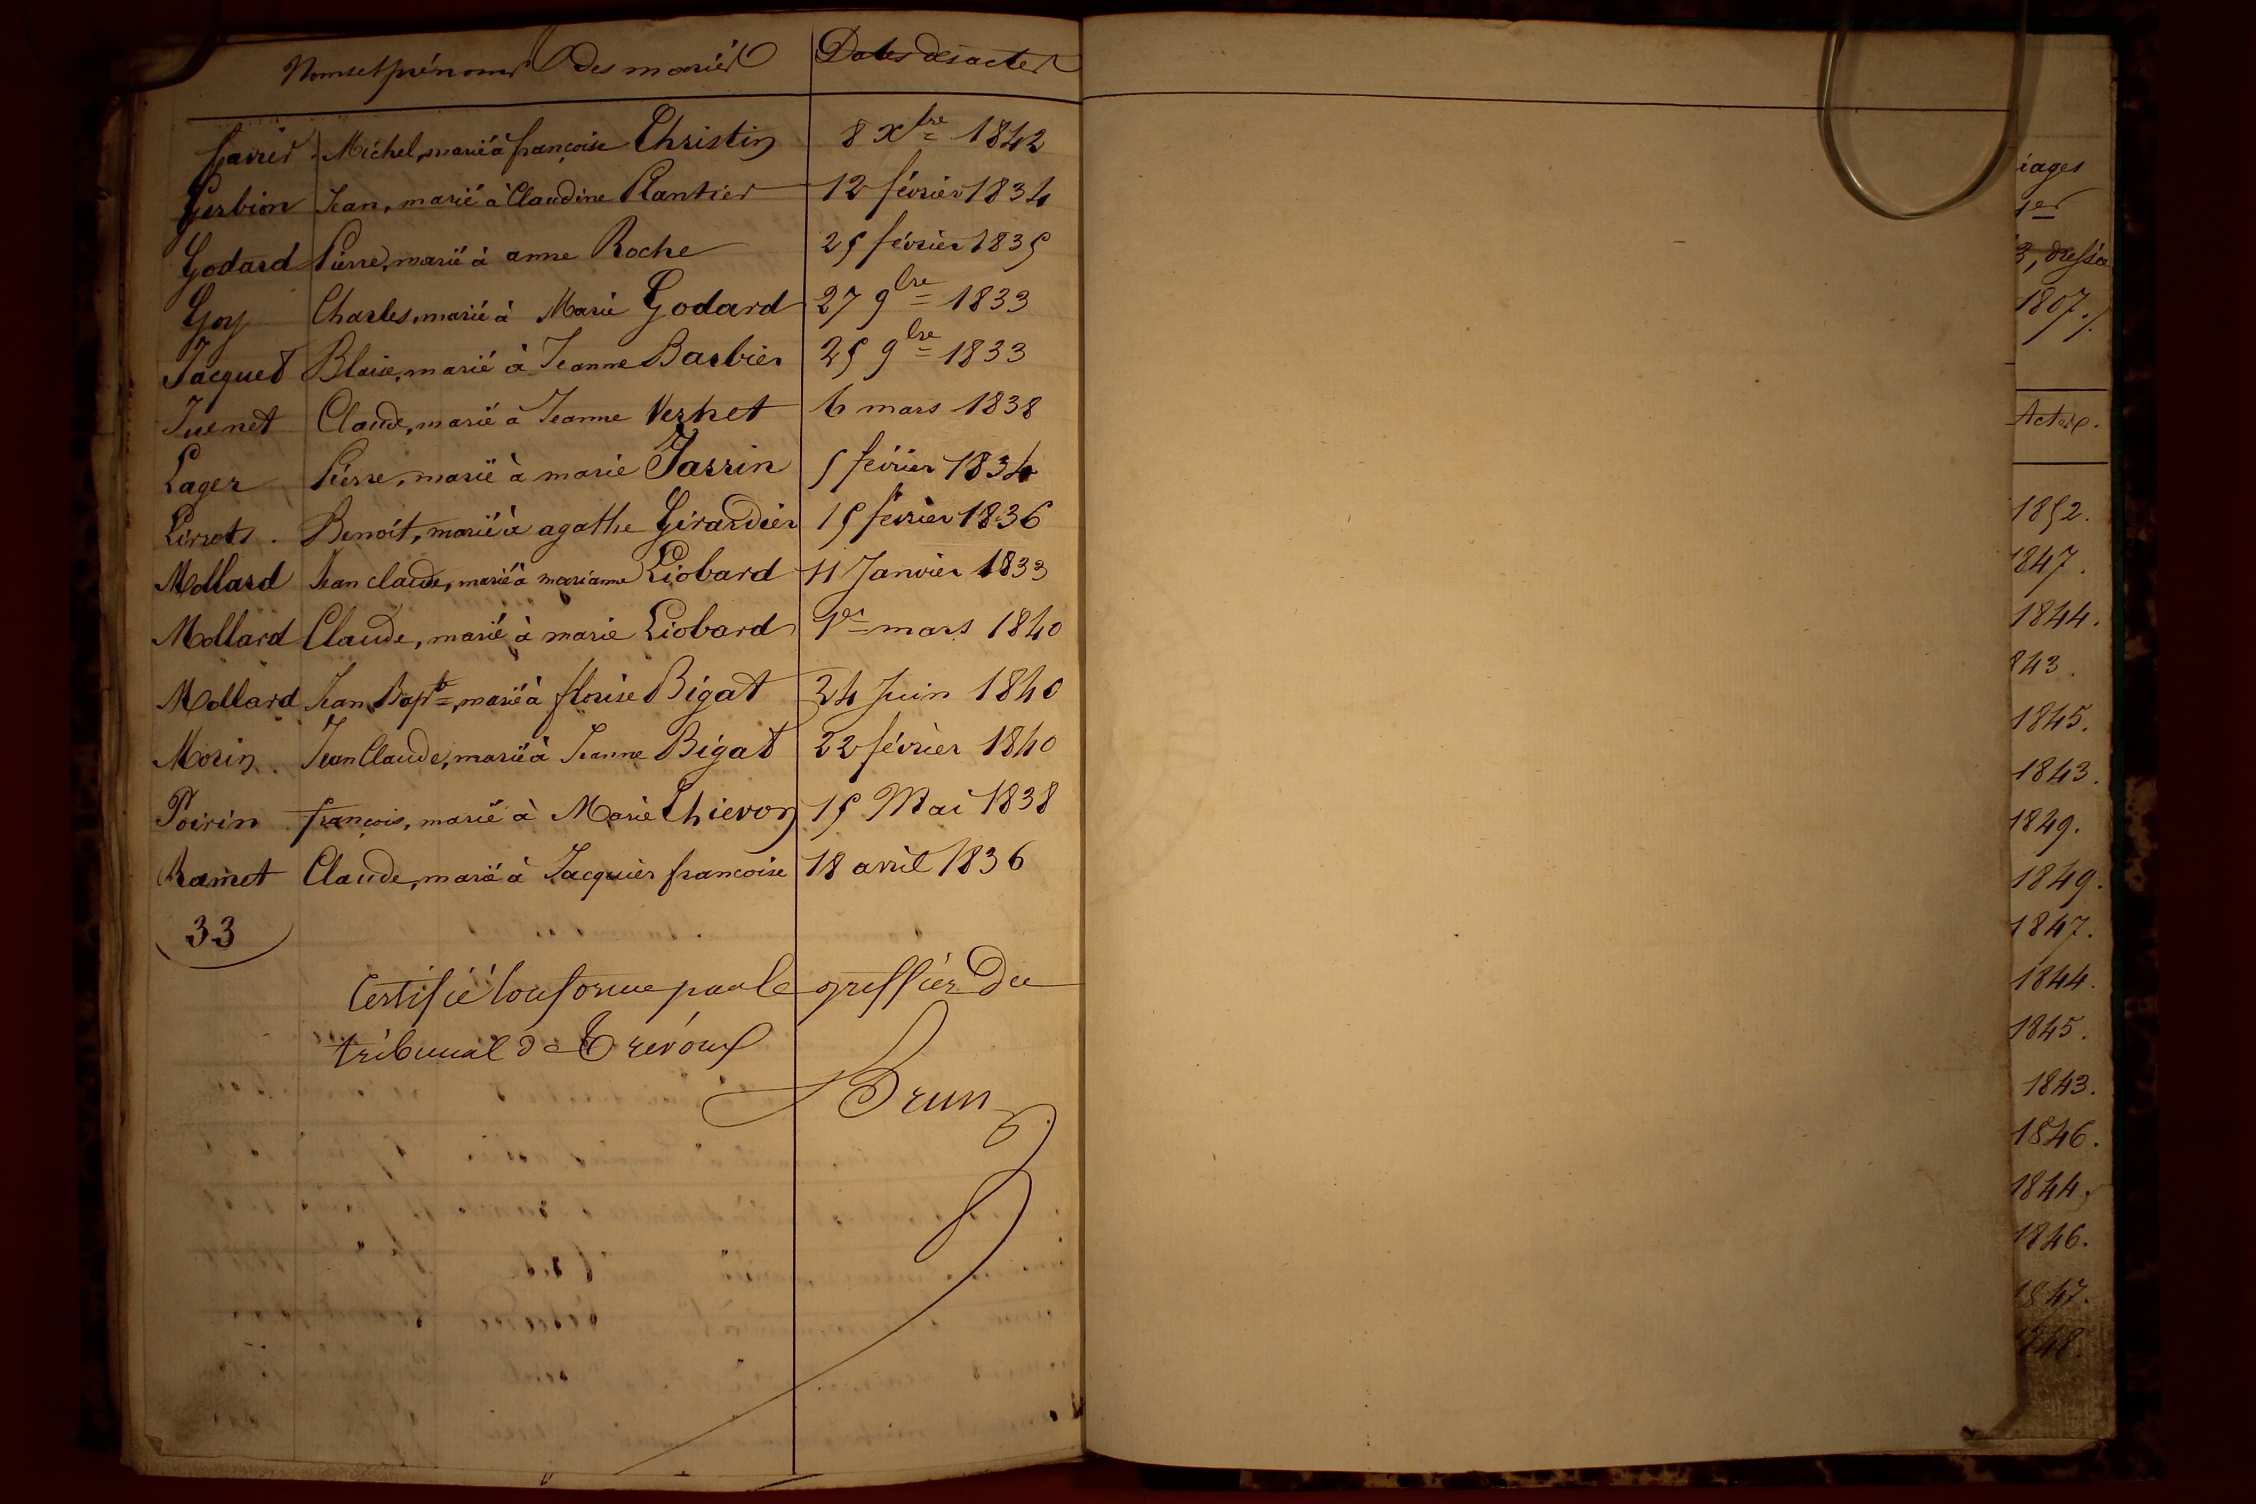 Noms et prénoms des mariés Dates des actes
Favier Michel, marié à françoise Christin 8 Xbre 1842
Gerbion Jean, marié à Claudine Plantier 12 février 1834
Godard Pierre, marié à anne Roche 25 février 1835
Goy Charles, marié à Marie Godard 27 9bre 1833
Jacquet Blaise, marié à Jeanne Barbier 25 9bre 1833
Juenet Claude, marié à Jeanne Vernet 6 mars 1838
Lager Pierre, marié à marie Jassin 5 février 1834
Benoit, marié à agathe Girardier 15 février 1836
Mollard Jean claude, marié à marianne Liobard 11 Janvier 1833
Mollard Claude, marié à marie Liobard 1er mars 1840
Mollard Jean Bapte, marié à florise Bigat 24 Juin 1840
Morin Jean Claude, marié à Jeanne Bigat 22 février 1840
Poirin françois, marié à Marie Thievon 15 Mai 1838
Ramet Claude, marié à Jacquier francoise 18 avril 1836
33
Certifié conforme par le greffier du
tribunal de Trévoux
Brun
iages
1er
3, dressée
1807./.
Actes.
1852.
1847.
1844.
843.
1845.
1843.
1849.
1849.
1847.
1844.
1845.
1843.
1846.
1844.
1846.
1847.
1848.